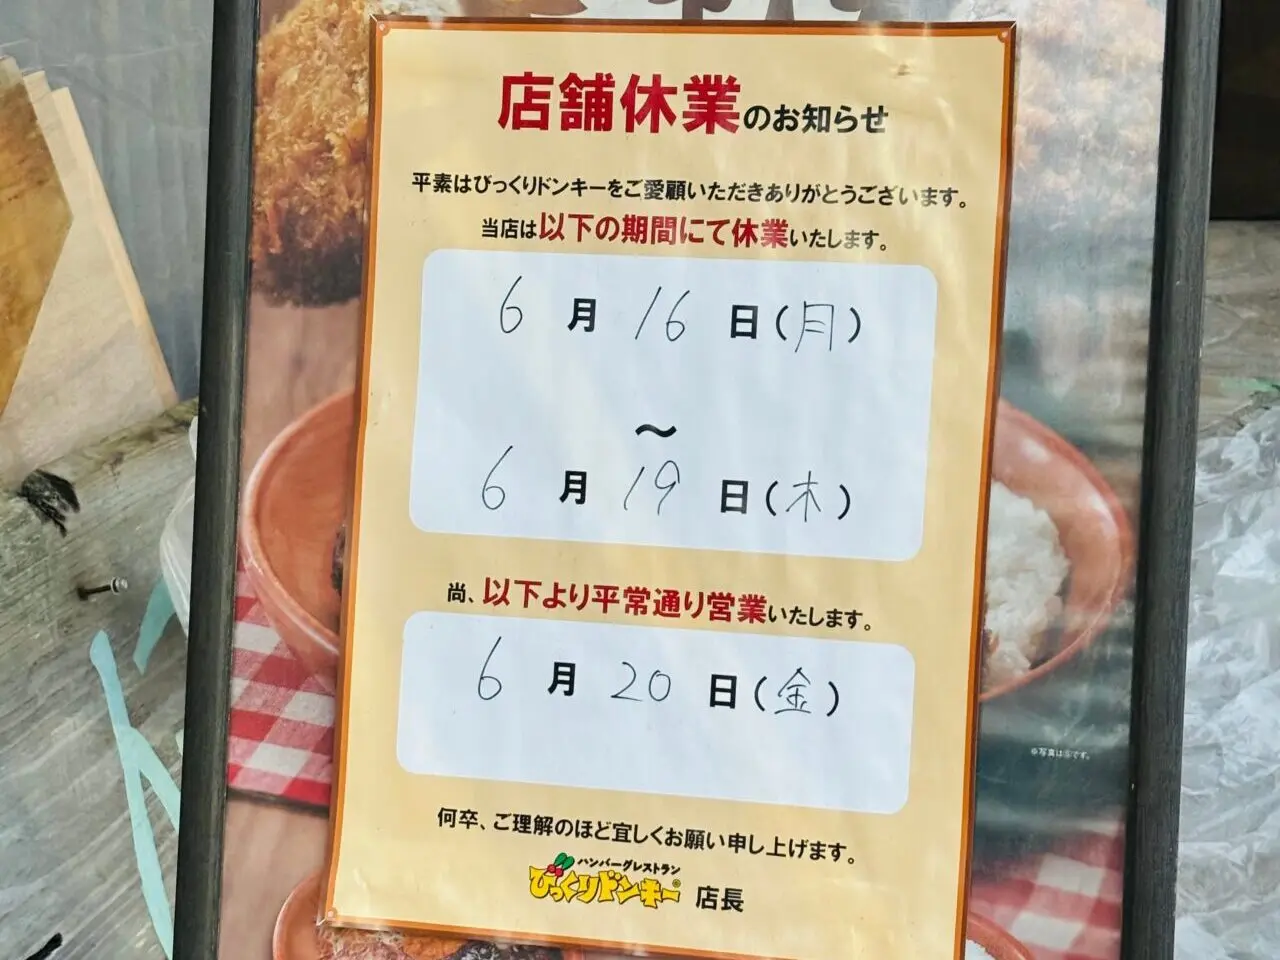 店舗休業のお知らせ
平素はびっくりドンキーをご愛顧いただきありがとうございます。
当店は以下の期間にて休業いたします。
6月16日(月)
~
6月19日(木)
尚、以下より平常通り営業いたします。
6月20日(金)
※写真はⓈです。
何卒、ご理解のほど宜しくお願い申し上げます。
ハンバーグレストラン
びっくりドンキー® 店長